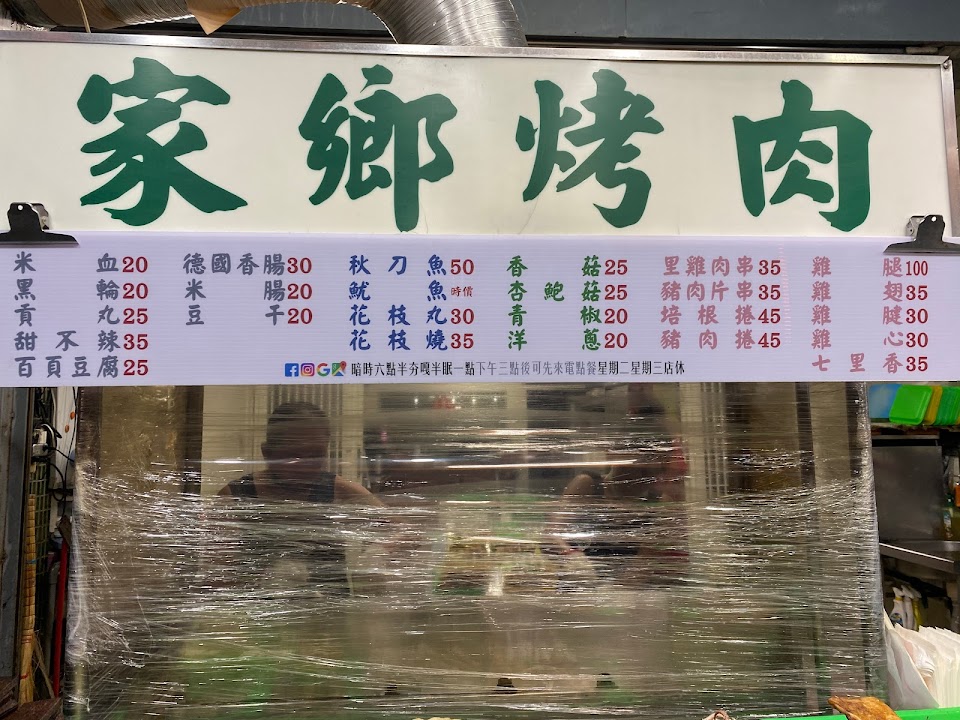 家鄉烤肉
米血20
黑輪20
貢丸25
甜不辣35
百頁豆腐25
德國香腸30
米腸20
豆干20
秋刀魚50
魷魚時價
花枝丸30
花枝燒35
香菇25
杏鮑菇25
青椒20
洋蔥20
里雞肉串35
豬肉片串35
培根捲45
豬肉捲45
雞腿100
雞翅35
雞腱30
雞心30
七里香35
暗時六點半夯嘎半眠一點下午三點後可先來電點餐星期二星期三店休